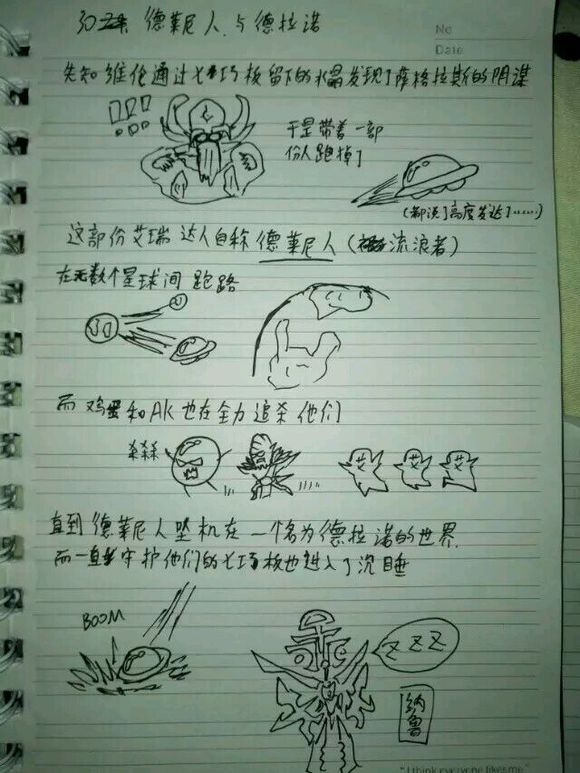 30 德莱尼人与德拉诺
No
Date
先知维伦通过七巧板留下的水晶发现了萨格拉斯的阴谋
!!!
于是带着一部
份人跑掉了
(都说了高度发达了……)
这部份艾瑞达人自称德莱尼人(流浪者)
在无数个星球间跑路
而鸡蛋和AK也在全力追杀他们
杀杀杀
艾 艾 艾
直到德莱尼人坠机在一个名为德拉诺的世界.
而一直守护他们的七巧板也进入了沉睡
BOOM
Z Z Z
纳鲁
"I think everyone likes me"